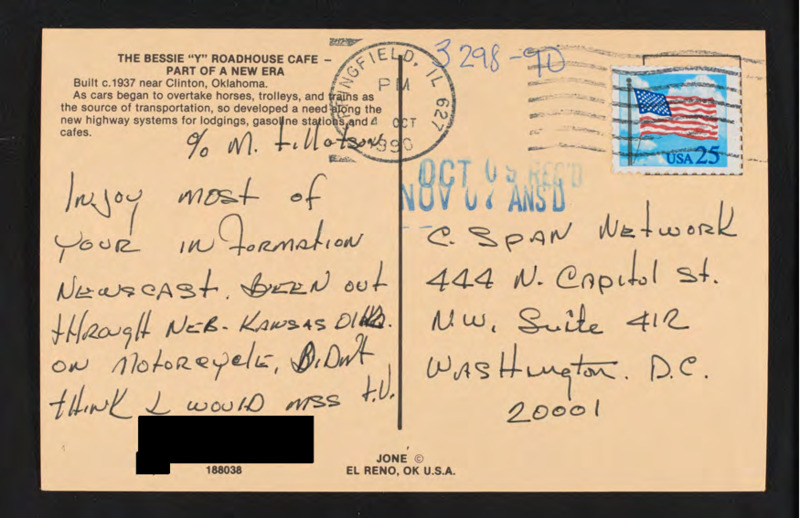 THE BESSIE "Y" ROADHOUSE CAFE –
PART OF A NEW ERA
Built c.1937 near Clinton, Oklahoma.
As cars began to overtake horses, trolleys, and trains as
the source of transportation, so developed a need along the
new highway systems for lodgings, gasoline stations, and
cafes.
% M. Tillotson
Injoy most of
your information
Newscast. Been out
through Neb. Kansas
on motorcycle, Didn't
think I would miss t.v.
188038
JONÉ ©
EL RENO, OK U.S.A.
SPRINGFIELD, IL 627
PM
4 OCT
1990
3298-90
USA 25
OCT 09 REC'D
NOV 07 ANS'D
C. Span Network
444 N. Capitol St.
N.W. Suite 412
Washington. D.C.
20001